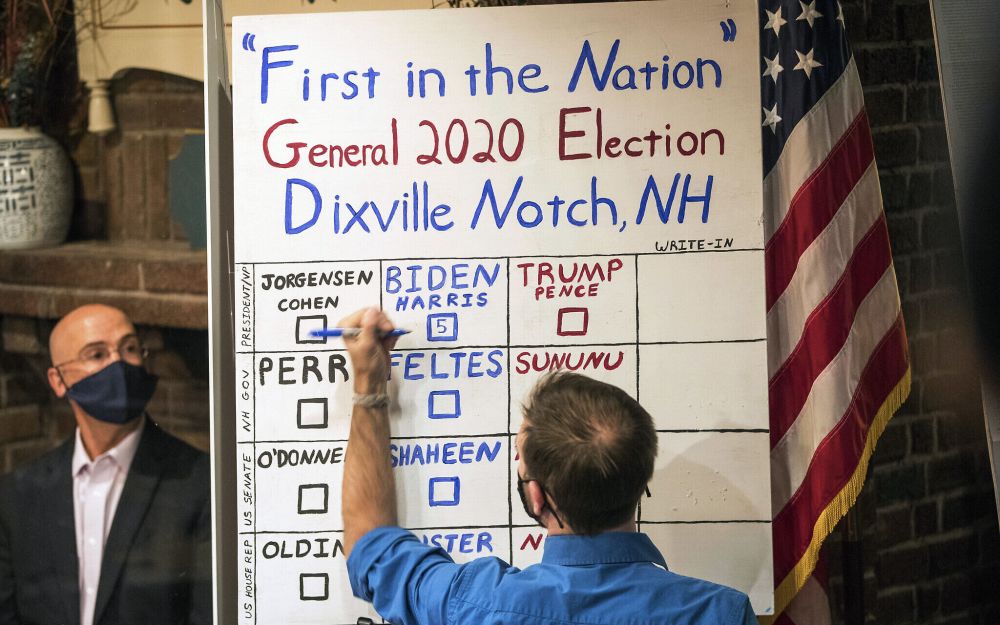 "First in the Nation"
General 2020 Election
Dixville Notch, NH
WRITE-IN
PRESIDENT/VP
JORGENSEN
COHEN
BIDEN
HARRIS
5
TRUMP
PENCE
NH GOV
PERR
FELTES
SUNUNU
US SENATE
O'DONNE
SHAHEEN
US HOUSE REP
OLDIN
STER
N